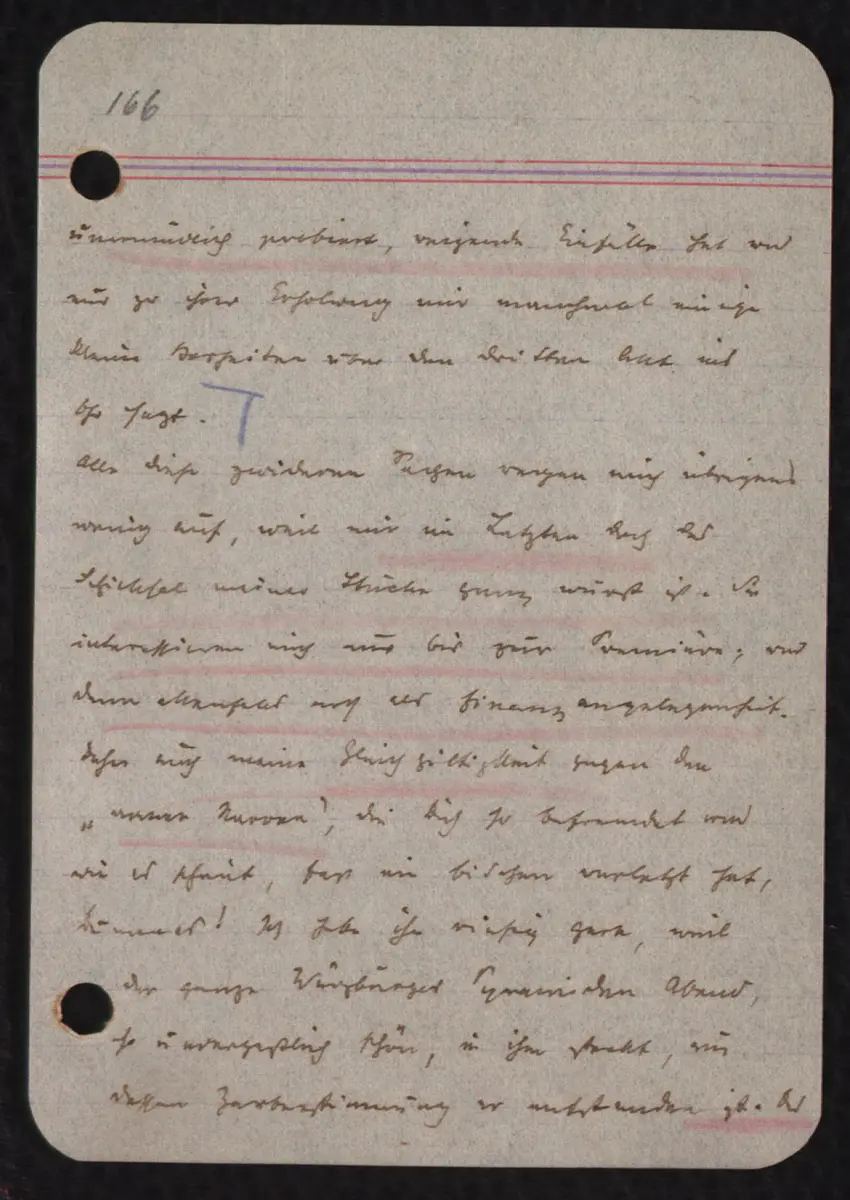 166
unermüdlich probiert, reizende Einfälle hat und
nur zu ihrer Erholung mir manchmal einige
kleine Bosheiten über den dritten Akt ins
Ohr sagt.
Alle diese zwideren Sachen regen mich übrigens
wenig auf, weil mir im Letzten doch das
Schicksal meiner Stücke ganz wurst ist. Sie
interessieren mich nur bis zur Première; und
dann allenfalls noch als Finanzangelegenheit.
Daher auch meine Gleichgiltigkeit gegen den
„armen Narren", die Dich so befremdet und
wie es scheint, fast ein bischen verletzt hat,
Dummes! Ich habe ihn riesig gern, weil
der ganze Würzburger Pyramiden Abend,
so unvergeßlich schön, in ihm steckt, aus
dessen Zauberstimmung er entstanden ist. Das